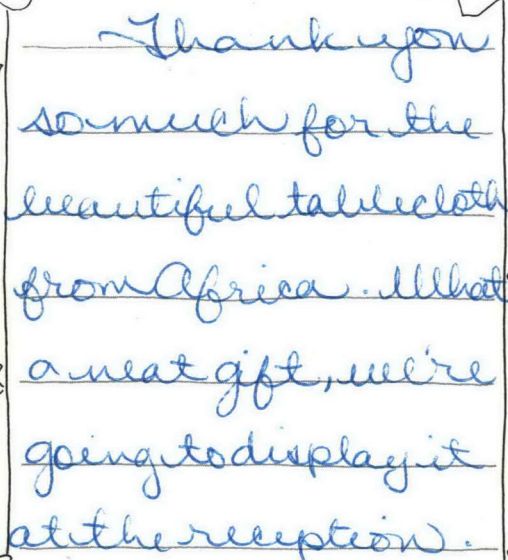 Thank you
so much for the
beautiful tablecloth
from Africa. What
a neat gift, we're
going to display it
at the reception.